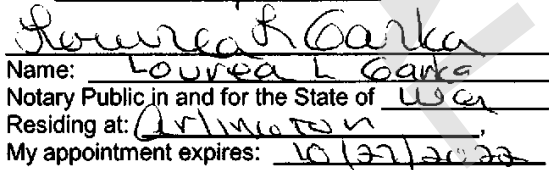 Lourea L Garka
Name: Lourea L Garka
Notary Public in and for the State of Wa
Residing at: Arlington,
My appointment expires: 10/27/2022